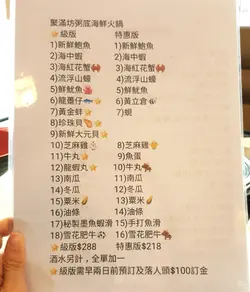 聚滿坊粥底海鮮火鍋
⭐級版 特惠版
1)新鮮鮑魚 1)新鮮鮑魚
2)海中蝦 2)海中蝦
3)海紅花蟹🦀 3)海紅花蟹🦀
4)流浮山蠔 4)流浮山蠔
5)鮮魷魚🦑 5)鮮魷魚
6)龍躉仔🐟⭐ 6)黃立倉
7)黃金蚌⭐ 7)蜆
8)珍珠貝⭐
9)新鮮大元貝⭐
10)芝麻雞 8)芝麻雞
11)牛丸 9)魚蛋
12)龍蝦丸⭐ 10)牛丸
13)南瓜 11)南瓜
14)冬瓜 12)冬瓜
15)粟米 13)粟米
16)油條 14)油條
17)秘製墨魚蝦滑 15)手打魚滑
18)雪花肥牛 16)雪花肥牛
⭐級版$288 特惠版$218
酒水另計，全單加一
⭐級版需早兩日前預訂及落人頭$100訂金